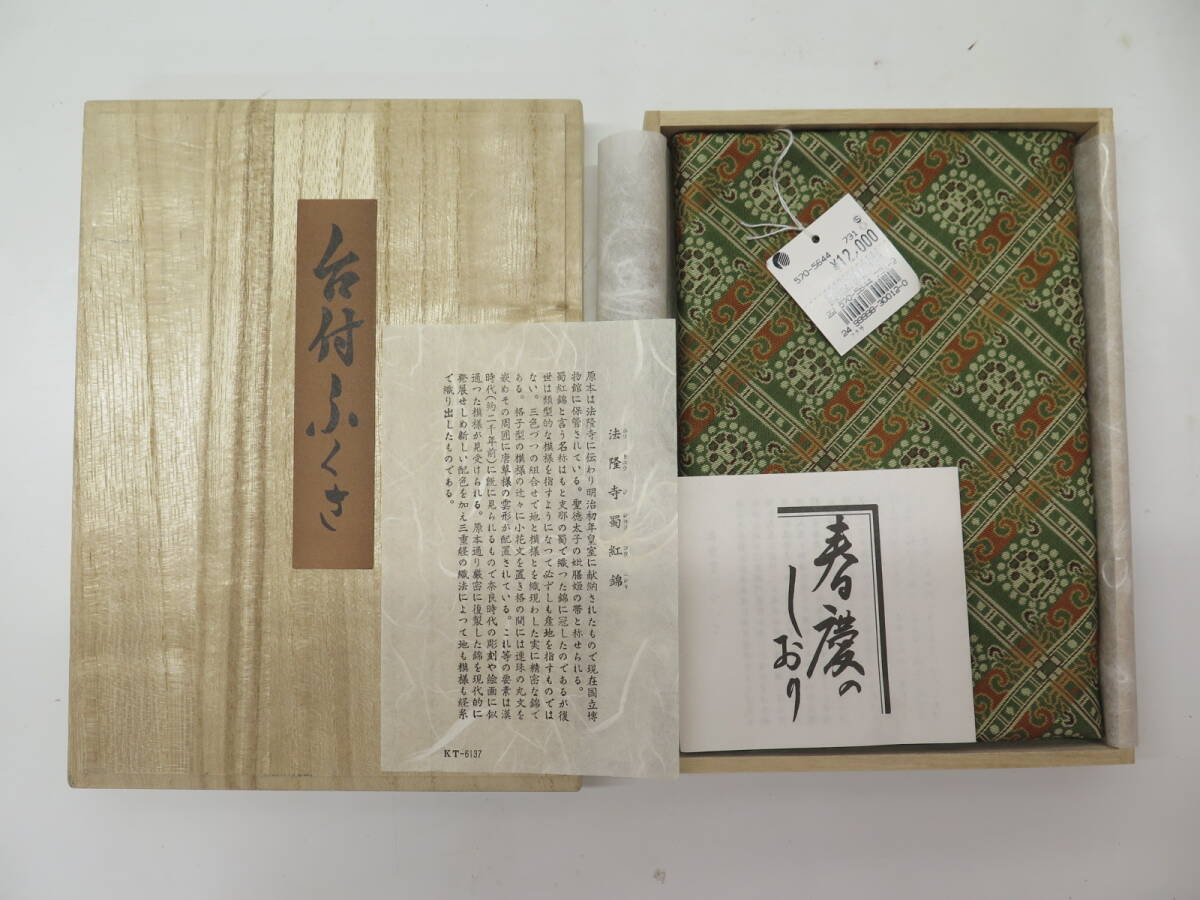 台付ふくさ
法隆寺蜀紅錦
原本は法隆寺に伝わり明治初年皇室に献納されたもので現在国立博
物館に保管されている。聖徳太子の妃膳妃の帯と称せられる。
蜀紅錦と言う名称はもと支那の蜀で織つた錦に冠したのであるが後
世は類型的な模様を指すようになつて必ずしも産地を指すものでは
ない。三色づつの組合せで地と模様とを織現わした実に精密な錦で
ある。格子型の模様の辻々に小花文を置き格の間には連珠の丸文を
嵌めその周囲に唐草様の雲形が配置されている。これ等の要素は漢
時代(約二千年前)に既に見られるもので奈良時代の彫刻や絵画に似
通つた模様が見受けられる。原本通り厳密に復製した錦を現代的に
発展せしめ新しい配色を加え三重経の織法によつて地も模様も経糸
で織り出したものである。
KT-6137
570-5644 731
¥12,000
24 99998-30012-0
春慶の
しおり